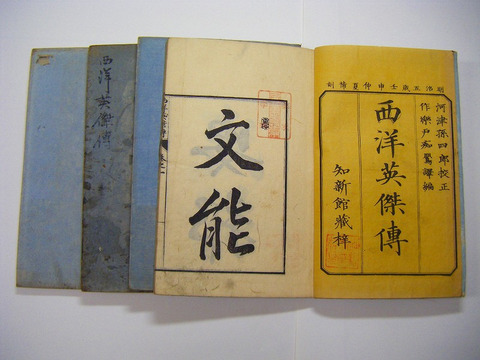 明治五歳壬申仲夏刻
河津孫四郎校正
作樂戸痴鶯譯編
西洋英傑傳
知新館藏梓
文能
西洋英傑傳